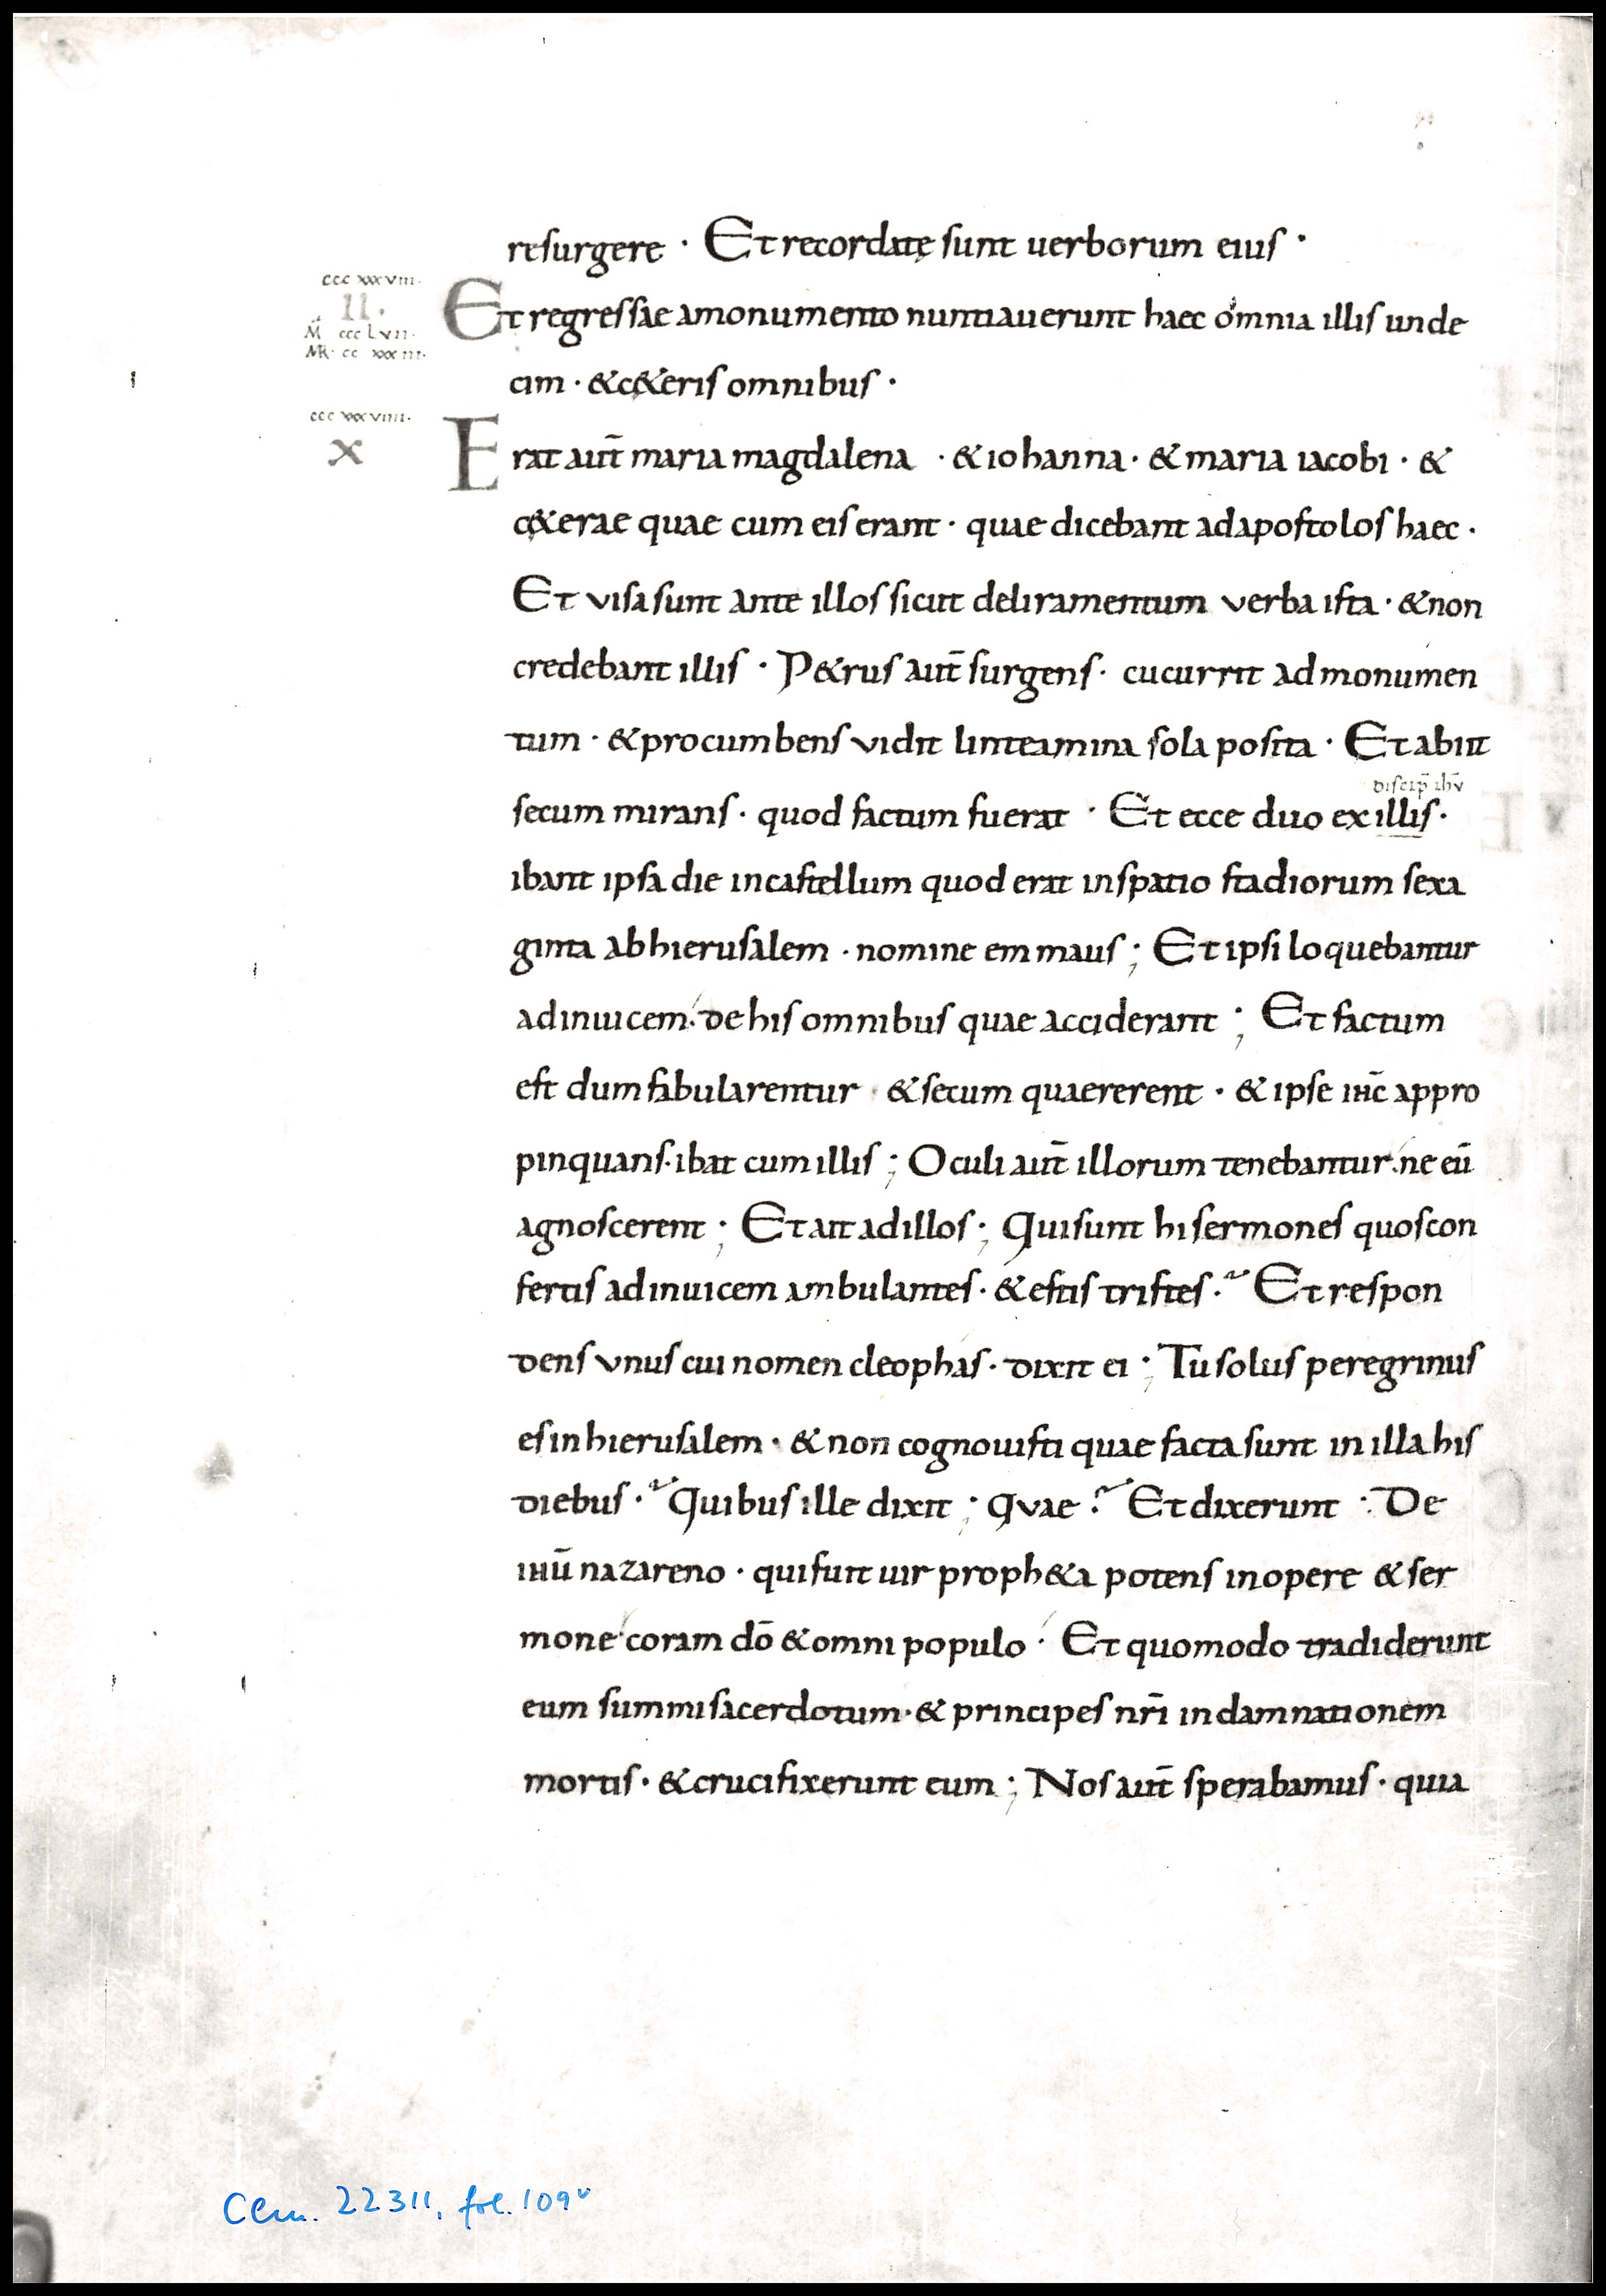 resurgere · Et recordatę sunt uerborum eius ·
ccc xxxviii.
II.
M ccclvii.
MR. cc xxxiii.
Et regressae amonumento nuntiauerunt haec omnia illis unde
cim · & c&eris omnibus ·
ccc xxxviiii.
X
Erat aut̄ maria magdalena · & iohanna · & maria iacobi · &
c&erae quae cum eis erant · quae dicebant ad apostolos haec ·
Et visa sunt ante illos sicut deliramentum verba ista · & non
credebant illis · P&rus aut̄ surgens · cucurrit ad monumen
tum · & procumbens vidit linteamina sola posita · Et abiit
discip̄ ihv̄
secum mirans · quod factum fuerat · Et ecce duo ex illis ·
ibant ipsa die in castellum quod erat in spatio stadiorum sexa
ginta ab hierusalem · nomine emmaus ; Et ipsi loquebantur
adinuicem · de his omnibus quae acciderant ; Et factum
est dum fabularentur · & secum quaererent · & ipse ihc̄ appro
pinquans · ibat cum illis ; Oculi aut̄ illorum tenebantur · ne eū
agnoscerent ; Et ait ad illos ; Qui sunt hi sermones quos con
fertis adinuicem ambulantes · & estis tristes ? Et respon
dens vnus cui nomen cleophas · dixit ei ; Tu solus peregrinus
es in hierusalem · & non cognouisti quae facta sunt in illa his
diebus ? Quibus ille dixit ; Qvae ? Et dixerunt : De
ihū nazareno · qui fuit uir proph&a potens in opere & ser
mone · coram dō & omni populo · Et quomodo tradiderunt
eum summi sacerdotum · & principes nr̄i in damnationem
mortis · & crucifixerunt eum ; Nos aut̄ sperabamus · quia
Clm. 22311, fol. 109v